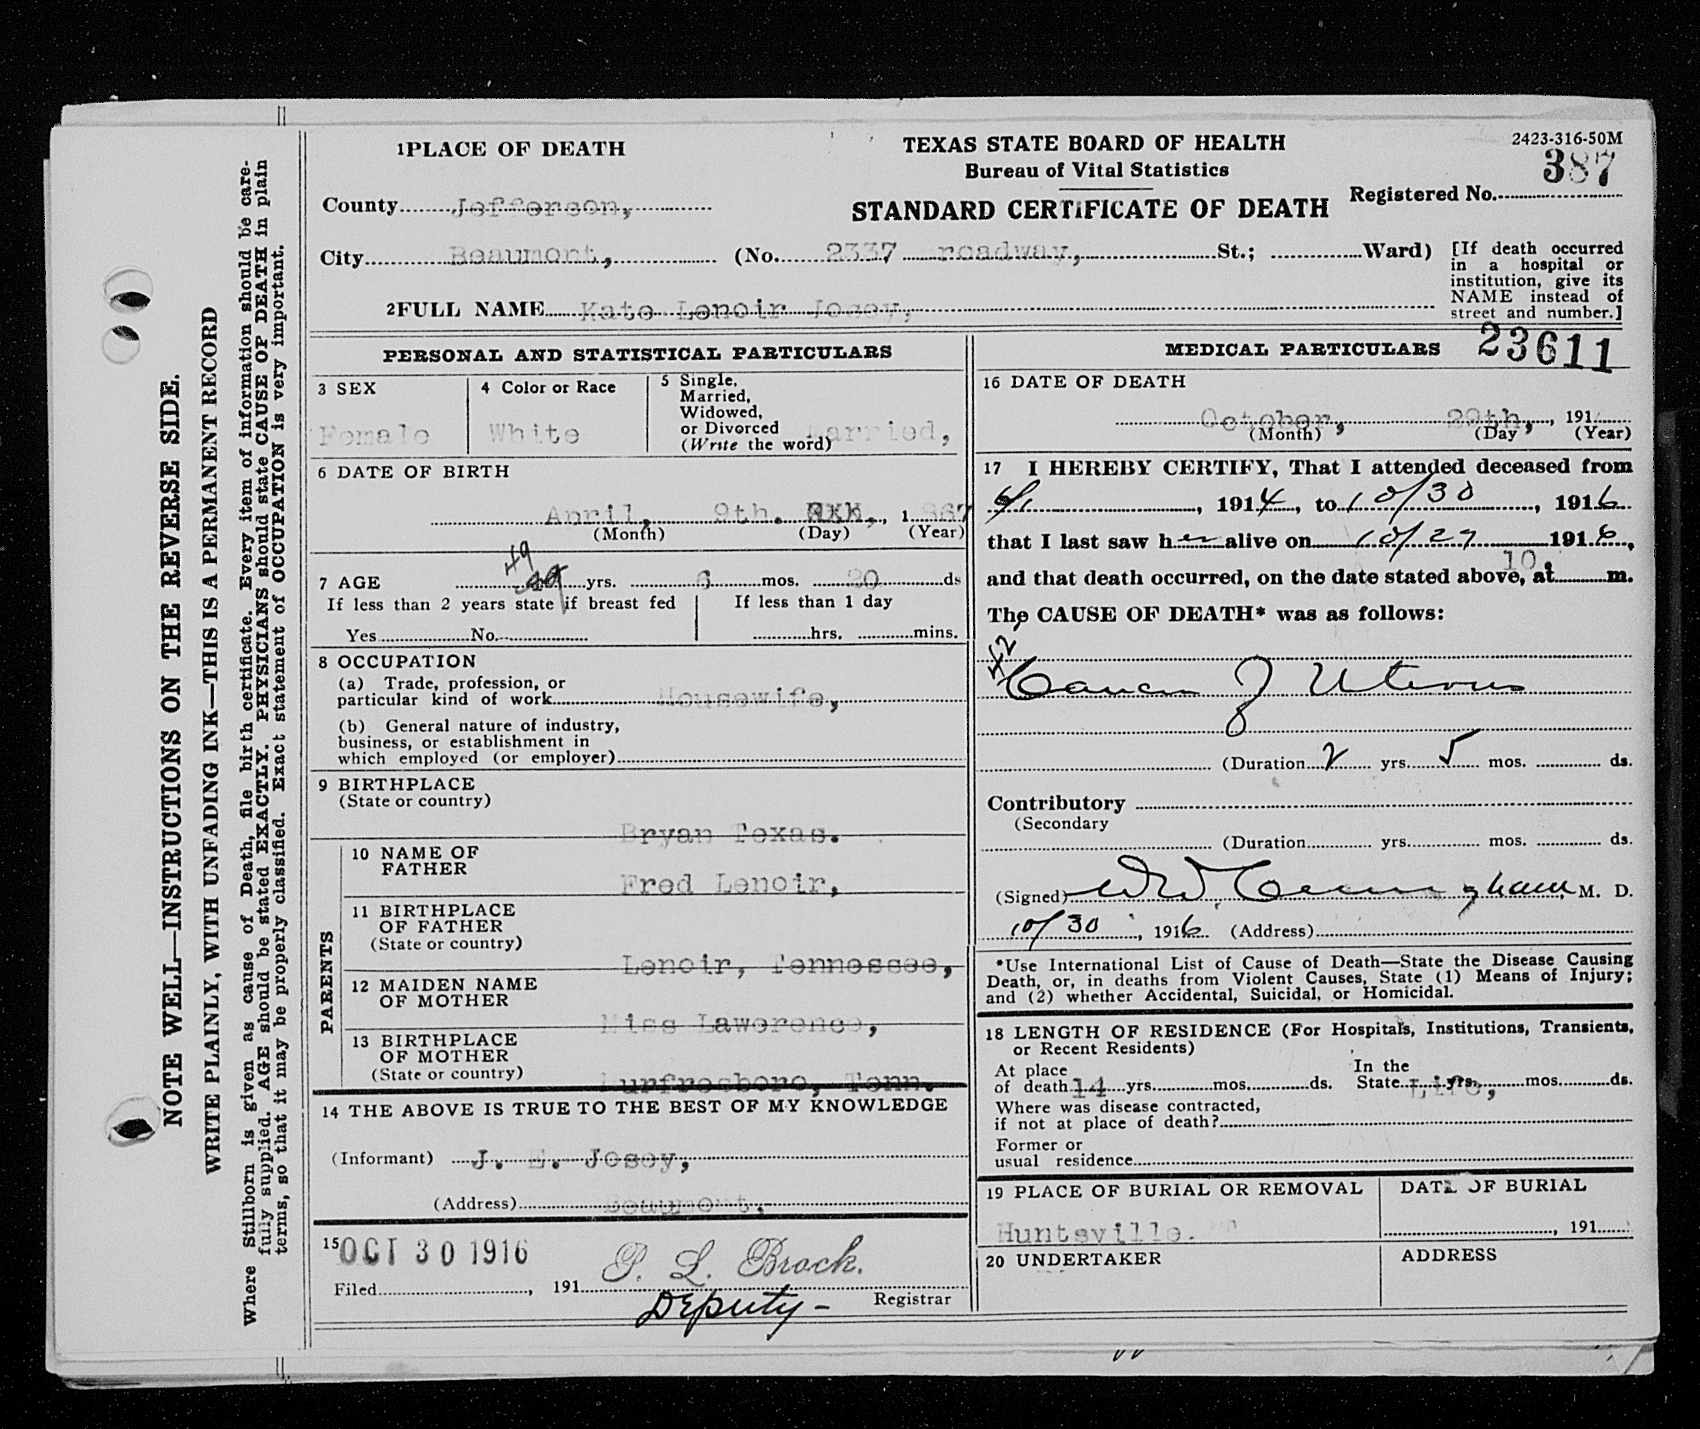 NOTE WELL—INSTRUCTIONS ON THE REVERSE SIDE.
WRITE PLAINLY, WITH UNFADING INK—THIS IS A PERMANENT RECORD
Where Stillborn is given as cause of Death, file birth certificate. Every item of information should be care-
fully supplied. AGE should be stated EXACTLY. PHYSICIANS should state CAUSE OF DEATH in plain
terms, so that it may be properly classified. Exact statement of OCCUPATION is very important.
1PLACE OF DEATH
County Jefferson,
TEXAS STATE BOARD OF HEALTH
Bureau of Vital Statistics
STANDARD CERTIFICATE OF DEATH
2423-316-50M
387
Registered No.
City Beaumont, (No. 2337 roadway, St.; Ward)
[If death occurred
in a hospital or
institution, give its
NAME instead of
street and number.]
2FULL NAME Kate Lenoir Josey,
PERSONAL AND STATISTICAL PARTICULARS
3 SEX
Female
4 Color or Race
White
5 Single,
Married,
Widowed,
or Divorced
(Write the word)
arried,
6 DATE OF BIRTH
April, 9th. , 1 867
(Month) (Day) (Year)
49
7 AGE yrs. 6 mos. 20 ds
If less than 2 years state if breast fed
Yes No.
If less than 1 day
hrs. mins.
8 OCCUPATION
(a) Trade, profession, or
particular kind of work Housewife,
(b) General nature of industry,
business, or establishment in
which employed (or employer)
9 BIRTHPLACE
(State or country)
Bryan Texas.
PARENTS
10 NAME OF
FATHER
Fred Lenoir,
11 BIRTHPLACE
OF FATHER
(State or country)
Lenoir, Tennessee,
12 MAIDEN NAME
OF MOTHER
Miss Laworence,
13 BIRTHPLACE
OF MOTHER
(State or country)
urfresboro, Tenn.
14 THE ABOVE IS TRUE TO THE BEST OF MY KNOWLEDGE
(Informant) J. E. Josey,
(Address) Beaumont,
15 OCT 30 1916
Filed , 191 P. L. Brock.
Deputy- Registrar
MEDICAL PARTICULARS
23611
16 DATE OF DEATH
October, 29th, , 191
(Month) (Day (Year)
17 I HEREBY CERTIFY, That I attended deceased from
, 1914, to 10/30, 1916
that I last saw her alive on 10/29 1916,
and that death occurred, on the date stated above, at 10. m.
The CAUSE OF DEATH* was as follows:
42
Cancer of Uterus
(Duration 2 yrs. 5 mos. ds.
Contributory
(Secondary
(Duration yrs. mos. ds.
(Signed) W W Cunningham, M. D.
10/30, 1916 (Address)
*Use International List of Cause of Death—State the Disease Causing
Death, or, in deaths from Violent Causes, State (1) Means of Injury;
and (2) whether Accidental, Suicidal, or Homicidal.
18 LENGTH OF RESIDENCE (For Hospitals, Institutions, Transients,
or Recent Residents)
At place
of death 14 yrs. mos. ds.
In the
State Life, yrs. mos. ds.
Where was disease contracted,
if not at place of death?
Former or
usual residence
19 PLACE OF BURIAL OR REMOVAL
Huntsville.
DATE OF BURIAL
, 191
20 UNDERTAKER
ADDRESS